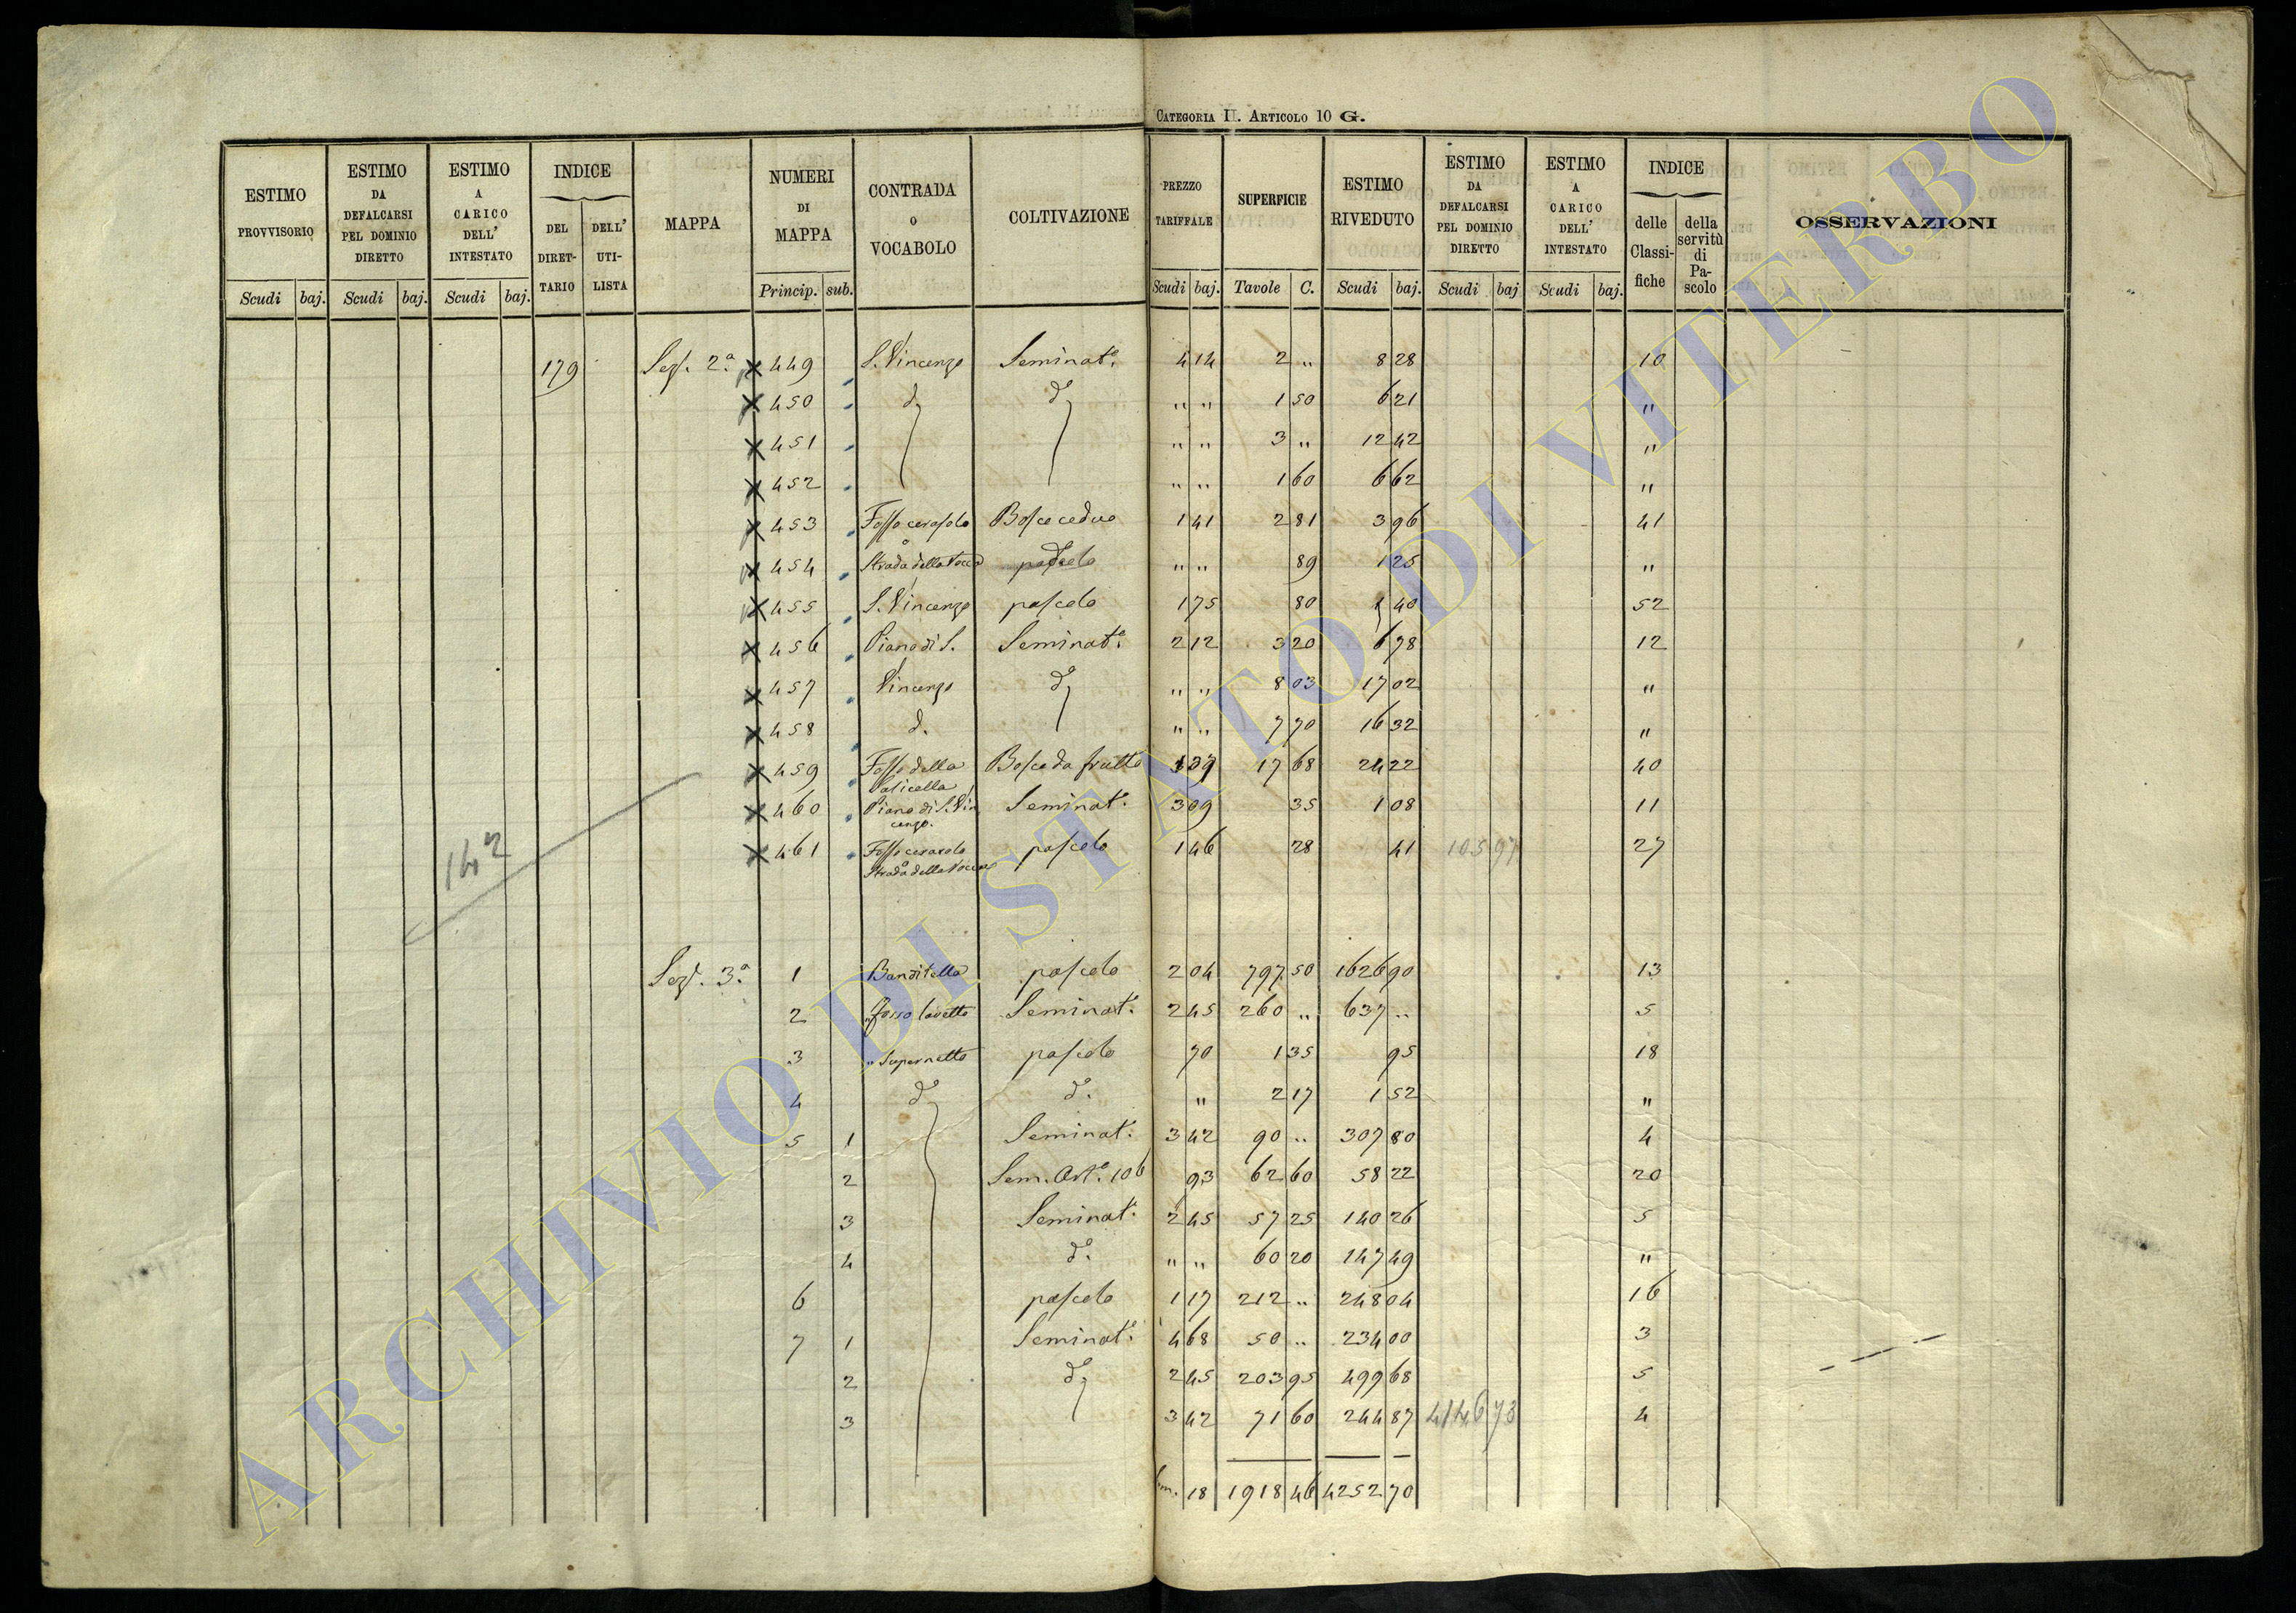 CATEGORIA II. ARTICOLO 10 G.
ESTIMO PROVVISORIO | ESTIMO DA DEFALCARSI PEL DOMINIO DIRETTO | ESTIMO A CARICO DELL' INTESTATO | INDICE DEL DIRET-TARIO | DELL' UTI-LISTA | MAPPA | NUMERI DI MAPPA | CONTRADA O VOCABOLO | COLTIVAZIONE | PREZZO TARIFFALE | SUPERFICIE | ESTIMO RIVEDUTO | ESTIMO DA DEFALCARSI PEL DOMINIO DIRETTO | ESTIMO A CARICO DELL' INTESTATO | INDICE delle Classi-fiche | della servitù di Pa-scolo | OSSERVAZIONI
Scudi baj. | Scudi baj. | Scudi baj. | Princip. sub. | Scudi baj. | Tavole C. | Scudi baj. | Scudi baj | Scudi baj.
179 Sez. 2ª. 449 S. Vincenzo Seminatº. 4 14 2 „ 8 28 10
450 d. dº „ „ 1 50 6 21 „
451 „ „ 3 „ 12 42 „
452 „ „ 1 60 6 62 „
453 Fosso cerasolo Bosco ceduo 1 41 2 81 3 96 41
454 o Strada della pascolo dº „ „ 89 1 25 „
455 S. Vincenzo pascolo 1 75 80 1 40 52
456 Piano di S. Seminatº. 2 12 3 20 6 78 12
457 Vincenzo dº „ „ 8 03 17 02 „
458 d. „ „ 7 70 16 32 „
459 Fosso della Bosco da frutto 1 37 17 68 24 22 40
460 Piano di S. Vincenzo. Seminatº. 3 09 35 1 08 11
461 Fosso cerasolo pascolo 1 46 28 41 105 97 27
o Strada della
142
Sez. 3ª. 1 Banditella pascolo 2 04 797 50 1626 90 13
2 Seminatº. 2 45 260 „ 637 „ 5
3 „ Supernetto pascolo 70 1 35 95 18
4 dº dº. „ 2 17 1 52 „
5 1 Seminatº. 3 42 90 „ 307 80 4
2 93 62 60 58 22 20
3 Seminatº. 2 45 57 25 140 26 5
4 dº. „ „ 60 20 147 49 „
6 pascolo 1 17 212 „ 248 04 16
7 1 Seminatº. 4 68 50 „ 234 00 3
2 dº 2 45 203 95 499 68 5
3 3 42 71 60 244 87 4146 73 4
18 1918 46 4252 70
ARCHIVIO DI STATO DI VITERBO